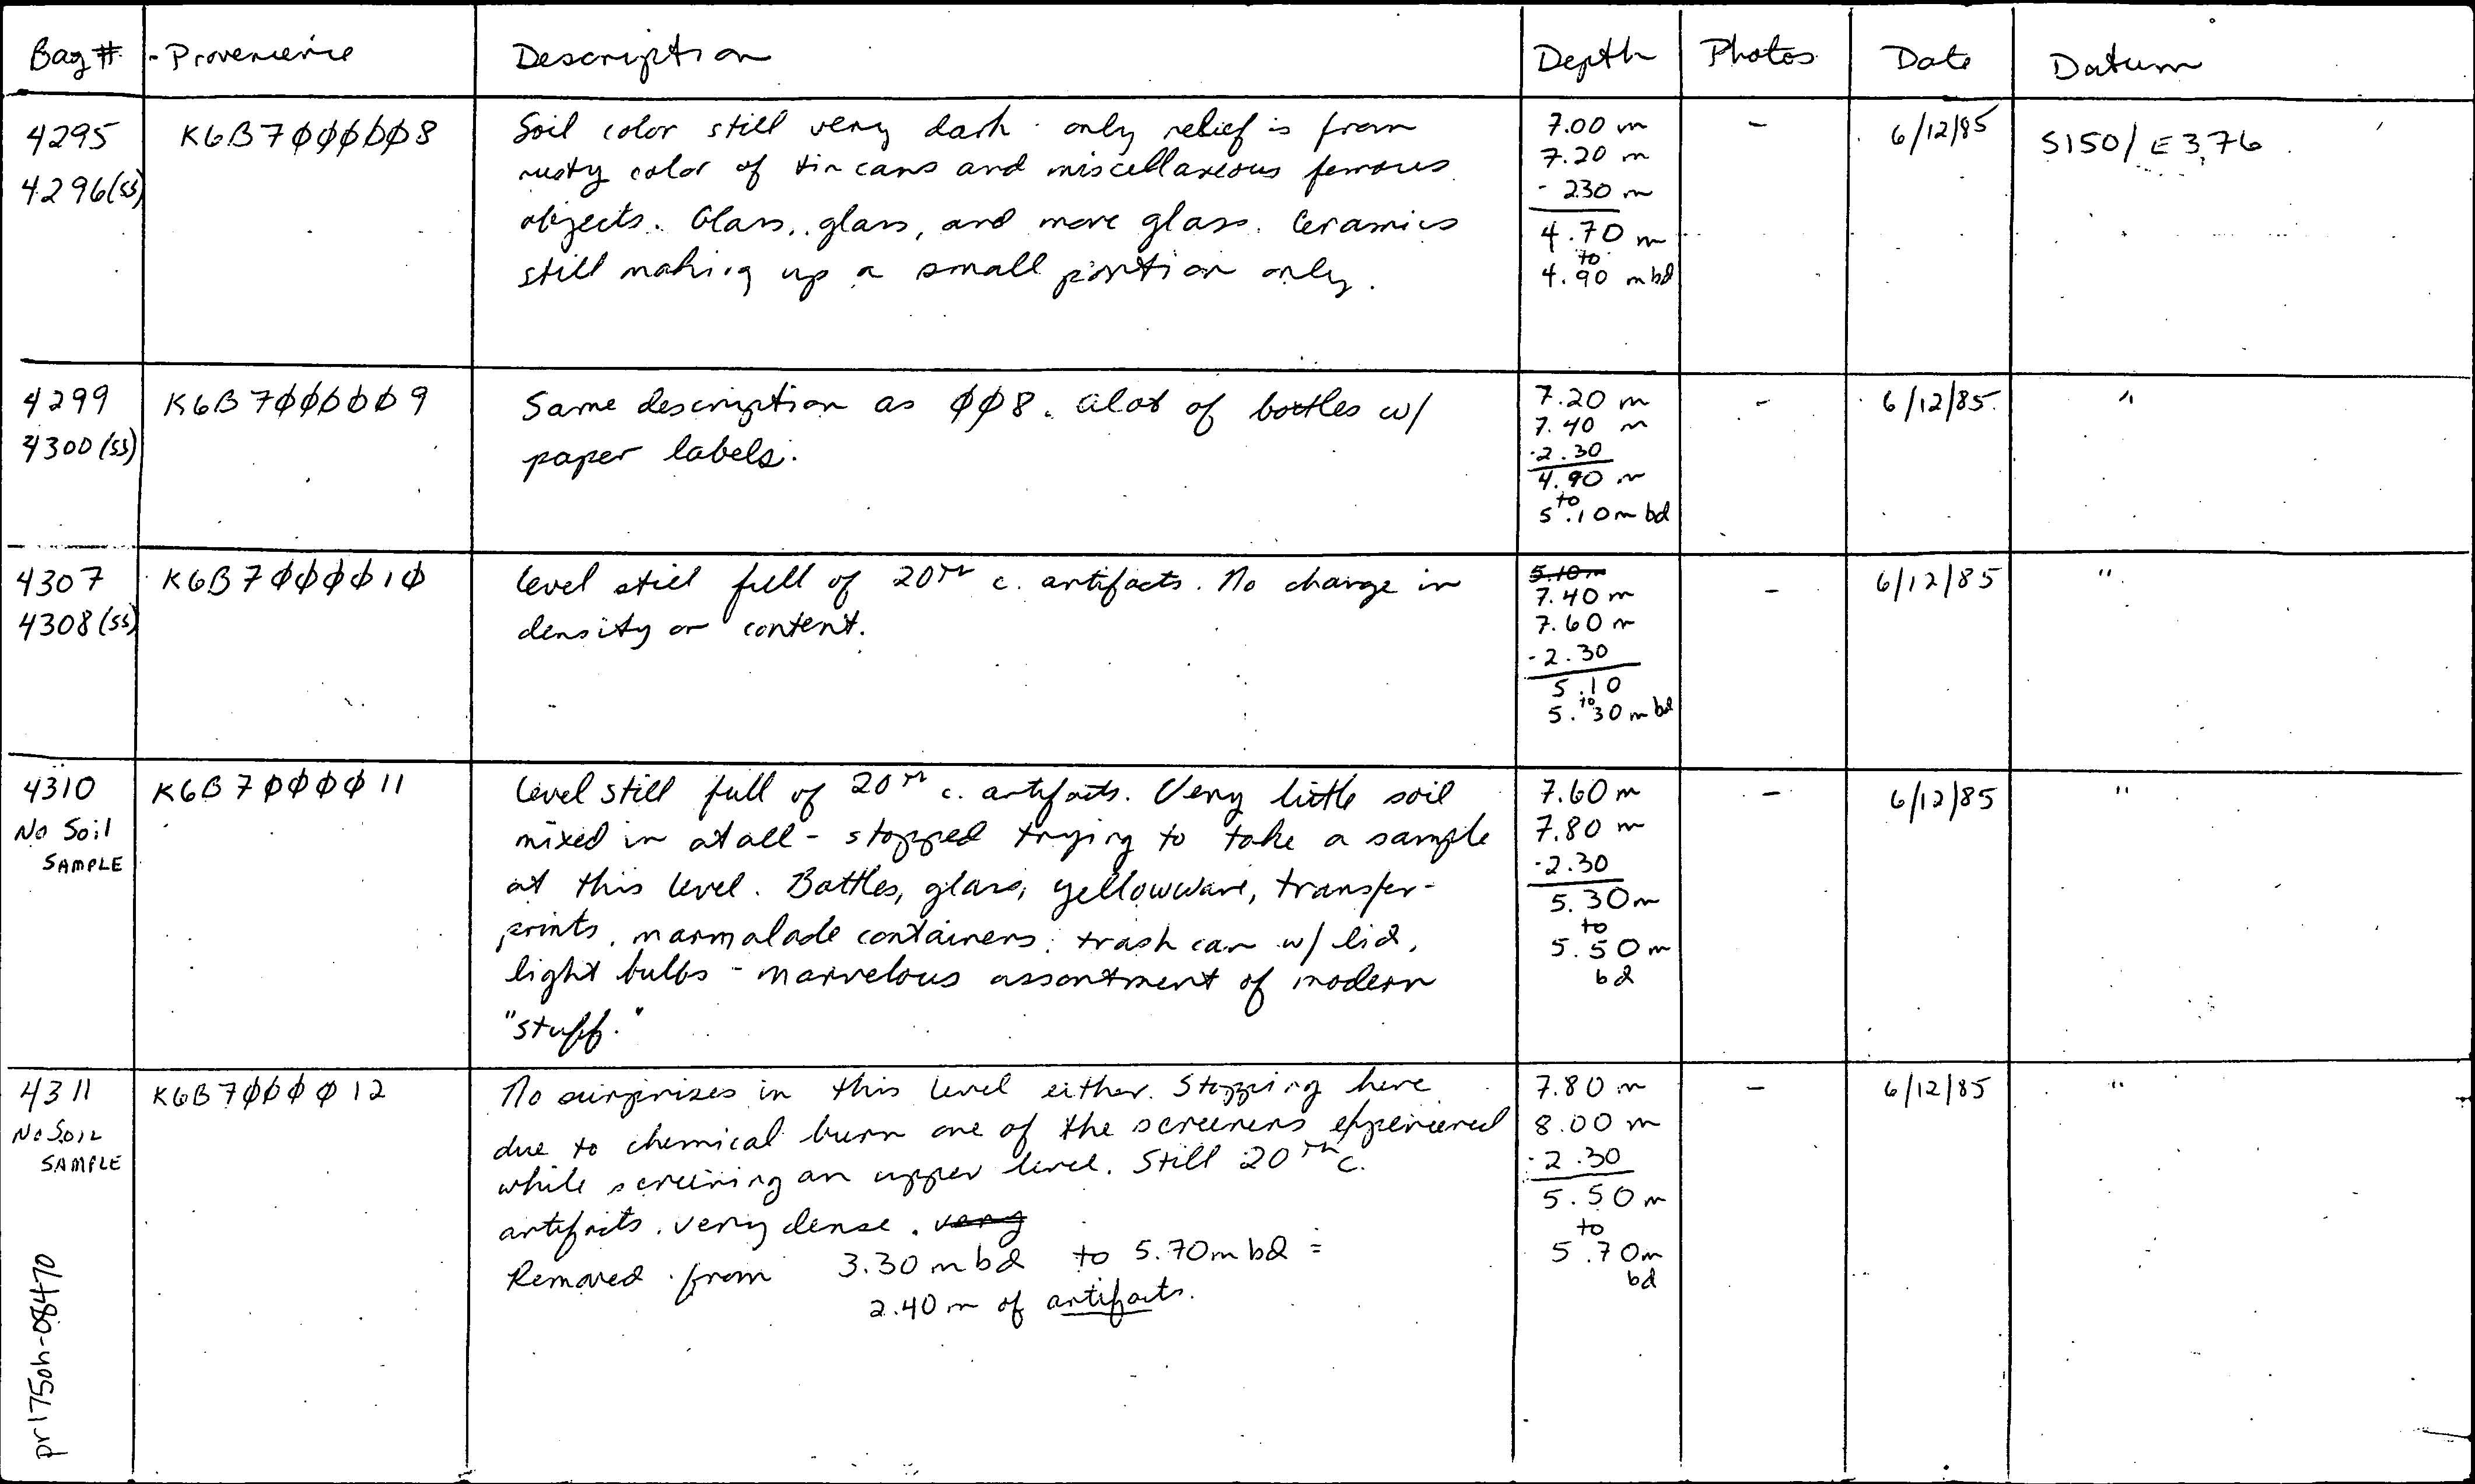 Bag # - Provenience Description Depth Photos Date Datum
4295 K6B7ØØØØØ8 Soil color still very dark - only relief is from 7.00 m - 6/12/85 S150/E3,76
4296(ss) rusty color of tin cans and miscellaneous ferrous 7.20 m
objects. Glass, glass, and more glass. Ceramics - 2.30 m
still making up a small portion only. 4.70 m
to
4.90 m bd
4299 K6B7ØØØØØ9 Same description as ØØ8. alot of bottles w/ 7.20 m - 6/12/85 "
4300(ss) paper labels. 7.40 m
-2.30
4.90 m
to
5.10 m bd
4307 K6B7ØØØØ1Ø level still full of 20th c. artifacts. No change in 5.10 m - 6/12/85 "
4308(ss) density or content. 7.40 m
7.60 m
-2.30
5.10
to
5.30 m bd
4310 K6B7ØØØØ11 level still full of 20th c. artifacts. Very little soil 7.60 m - 6/12/85 "
No Soil mixed in at all - stopped trying to take a sample 7.80 m
SAMPLE at this level. Bottles, glass, yellowware, transfer- -2.30
prints, marmalade containers, trash can w/ lid, 5.30 m
to
light bulbs - marvelous assortment of modern 5.50 m
"stuff." bd
4311 K6B7ØØØØ12 No surprises in this level either. Stopping here 7.80 m - 6/12/85 "
No Soil due to chemical burn one of the screeners experienced 8.00 m
SAMPLE while screening an upper level. Still 20th c. -2.30
artifacts. very dense. very 5.50 m
to
Removed from 3.30 m bd to 5.70 m bd = 5.70 m
2.40 m of artifacts. bd
pr1750h-08470